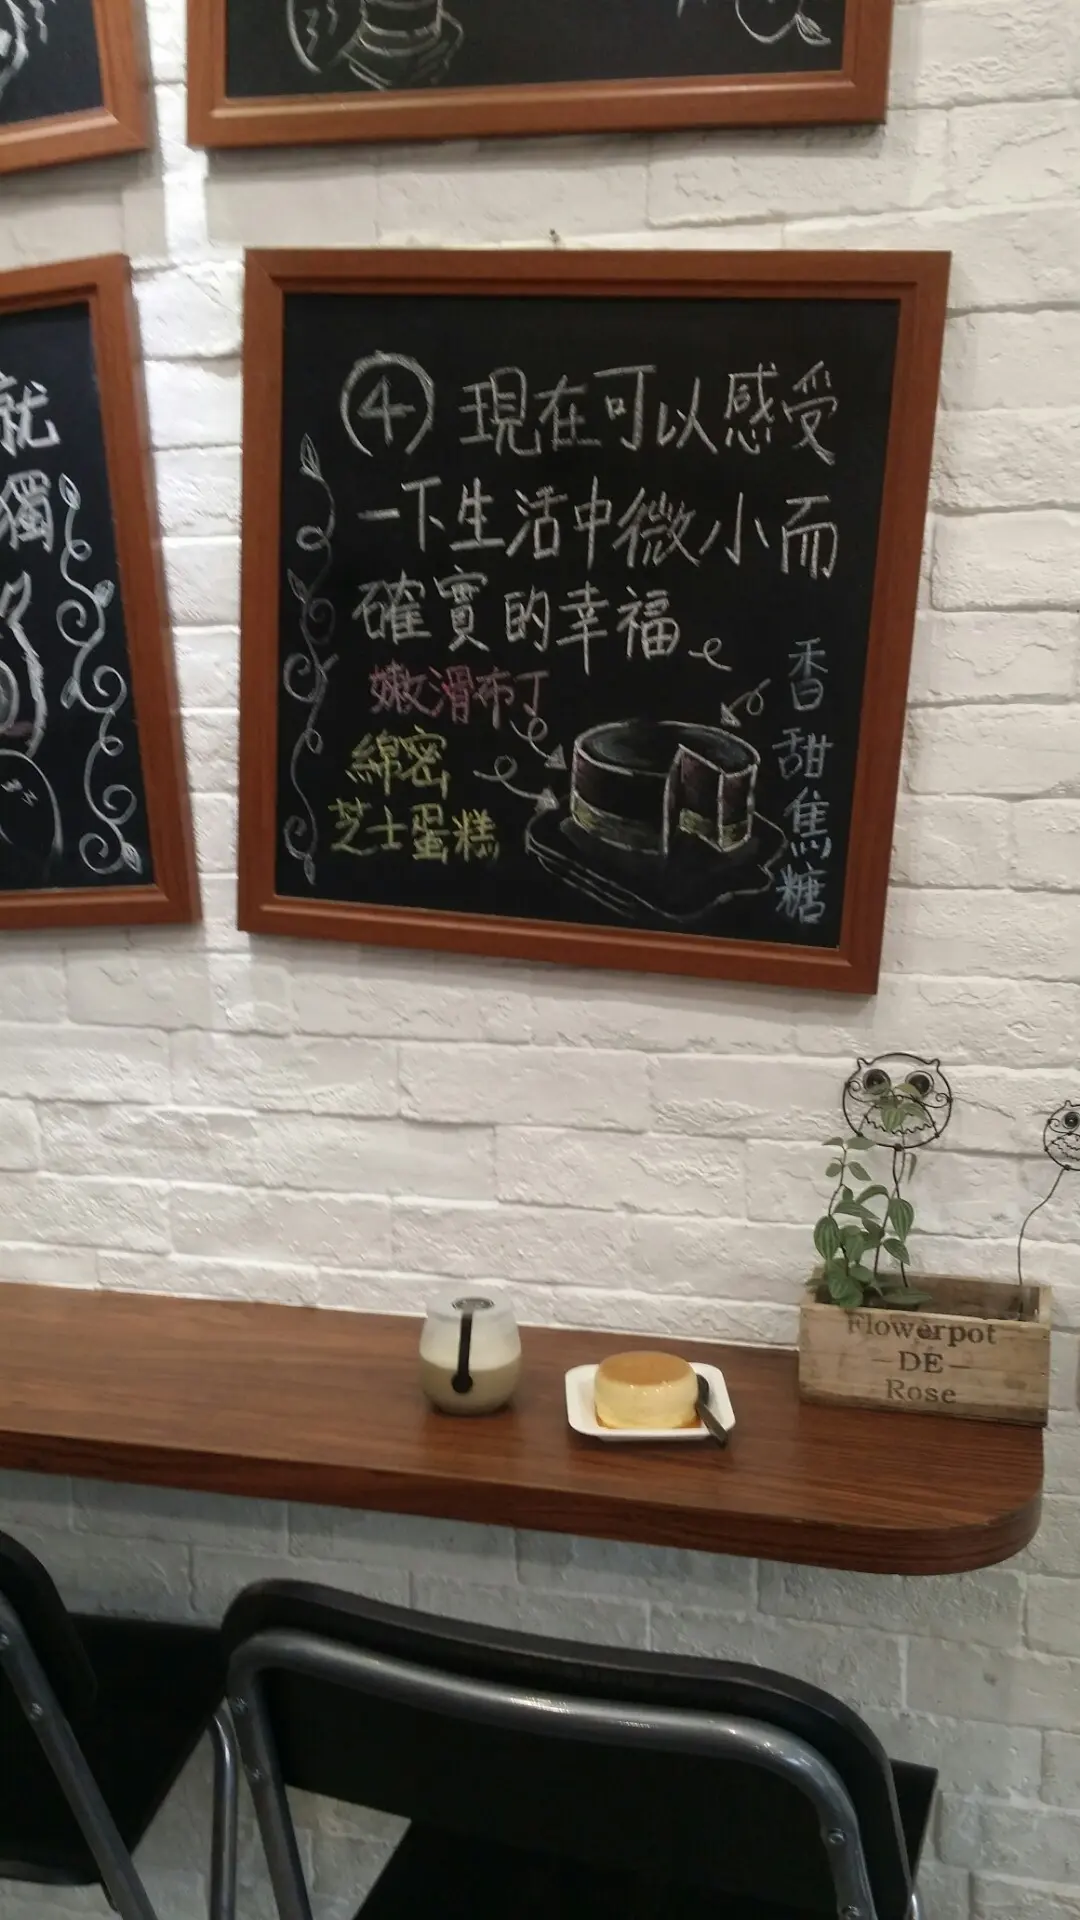 就
獨
④ 現在可以感受
一下生活中微小而
確實的幸福
嫩滑布丁
綿密
芝士蛋糕
香甜焦糖
Flowerpot
DE
Rose